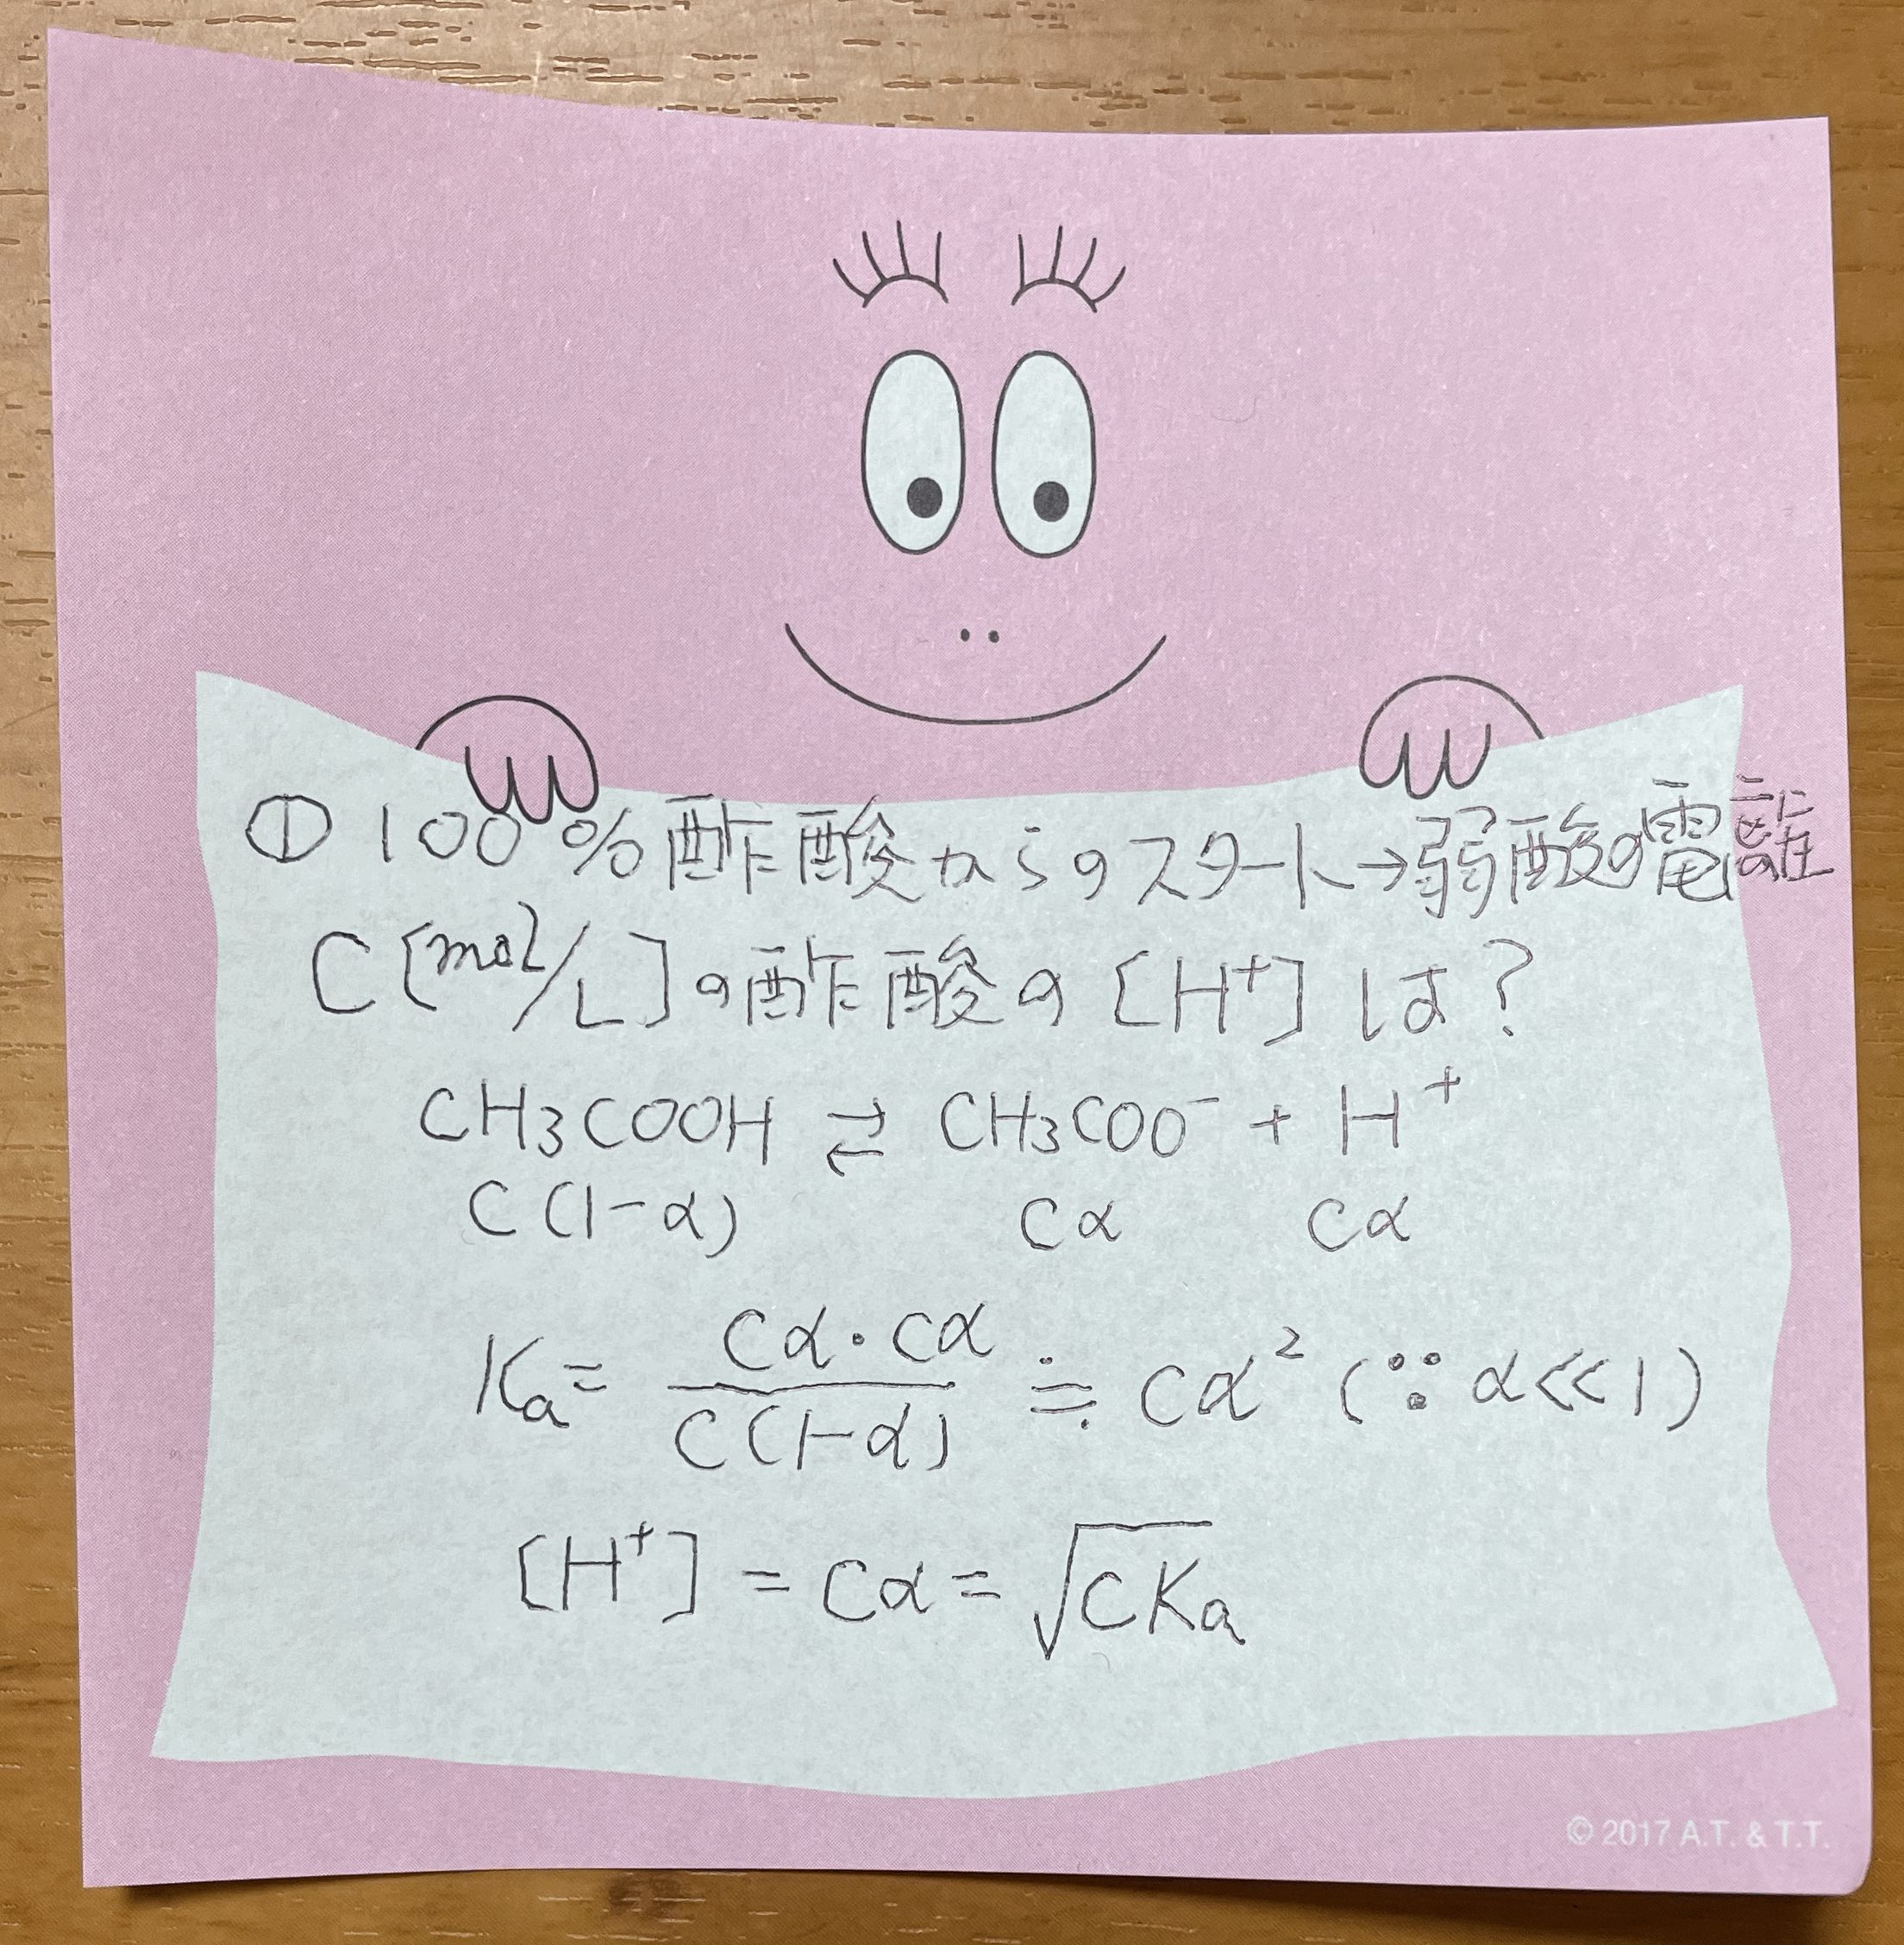 ① 100%酢酸からのスタート→弱酸の電離
C[mol/L]の酢酸の[H⁺]は?
CH₃COOH ⇄ CH₃COO⁻ + H⁺
C(1-α) Cα Cα
Ka = Cα・Cα / C(1-α) ≒ Cα² (∵ α≪1)
[H⁺] = Cα = √CKa
© 2017 A.T. & T.T.